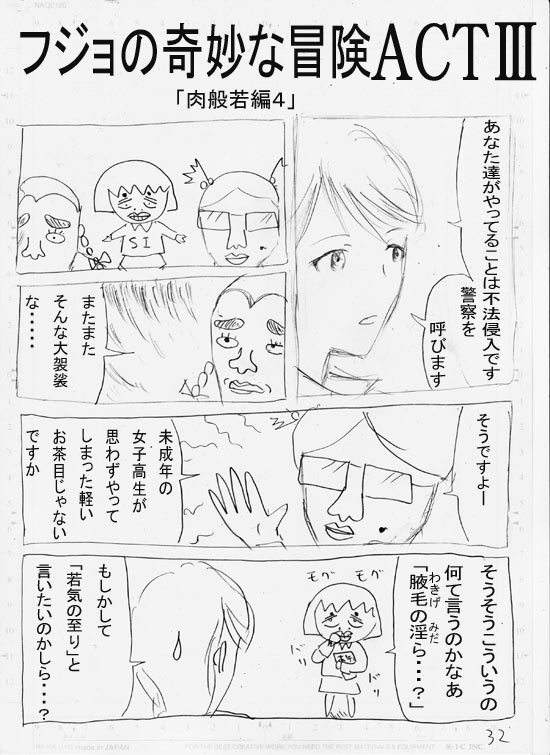 NAQ0120
フジョの奇妙な冒険ACTⅢ
「肉般若編４」
あなた達がやってることは不法侵入です
警察を
呼びます
SI
またまた
そんな大袈裟
な・・・・・
そうですよー
未成年の
女子高生が
思わずやって
しまった軽い
お茶目じゃない
ですか
そうそうこういうの
何て言うのかなあ
「腋毛の淫ら・・・？」
わきげ　みだ
モグ
モグ
ドリ
ドリ
もしかして
「若気の至り」と
言いたいのかしら・・・？
32
made in JAPAN
FOR THE BEST CREATIVE WORK YOU NEED THE BEST MATERIALS & EQUIPMENT